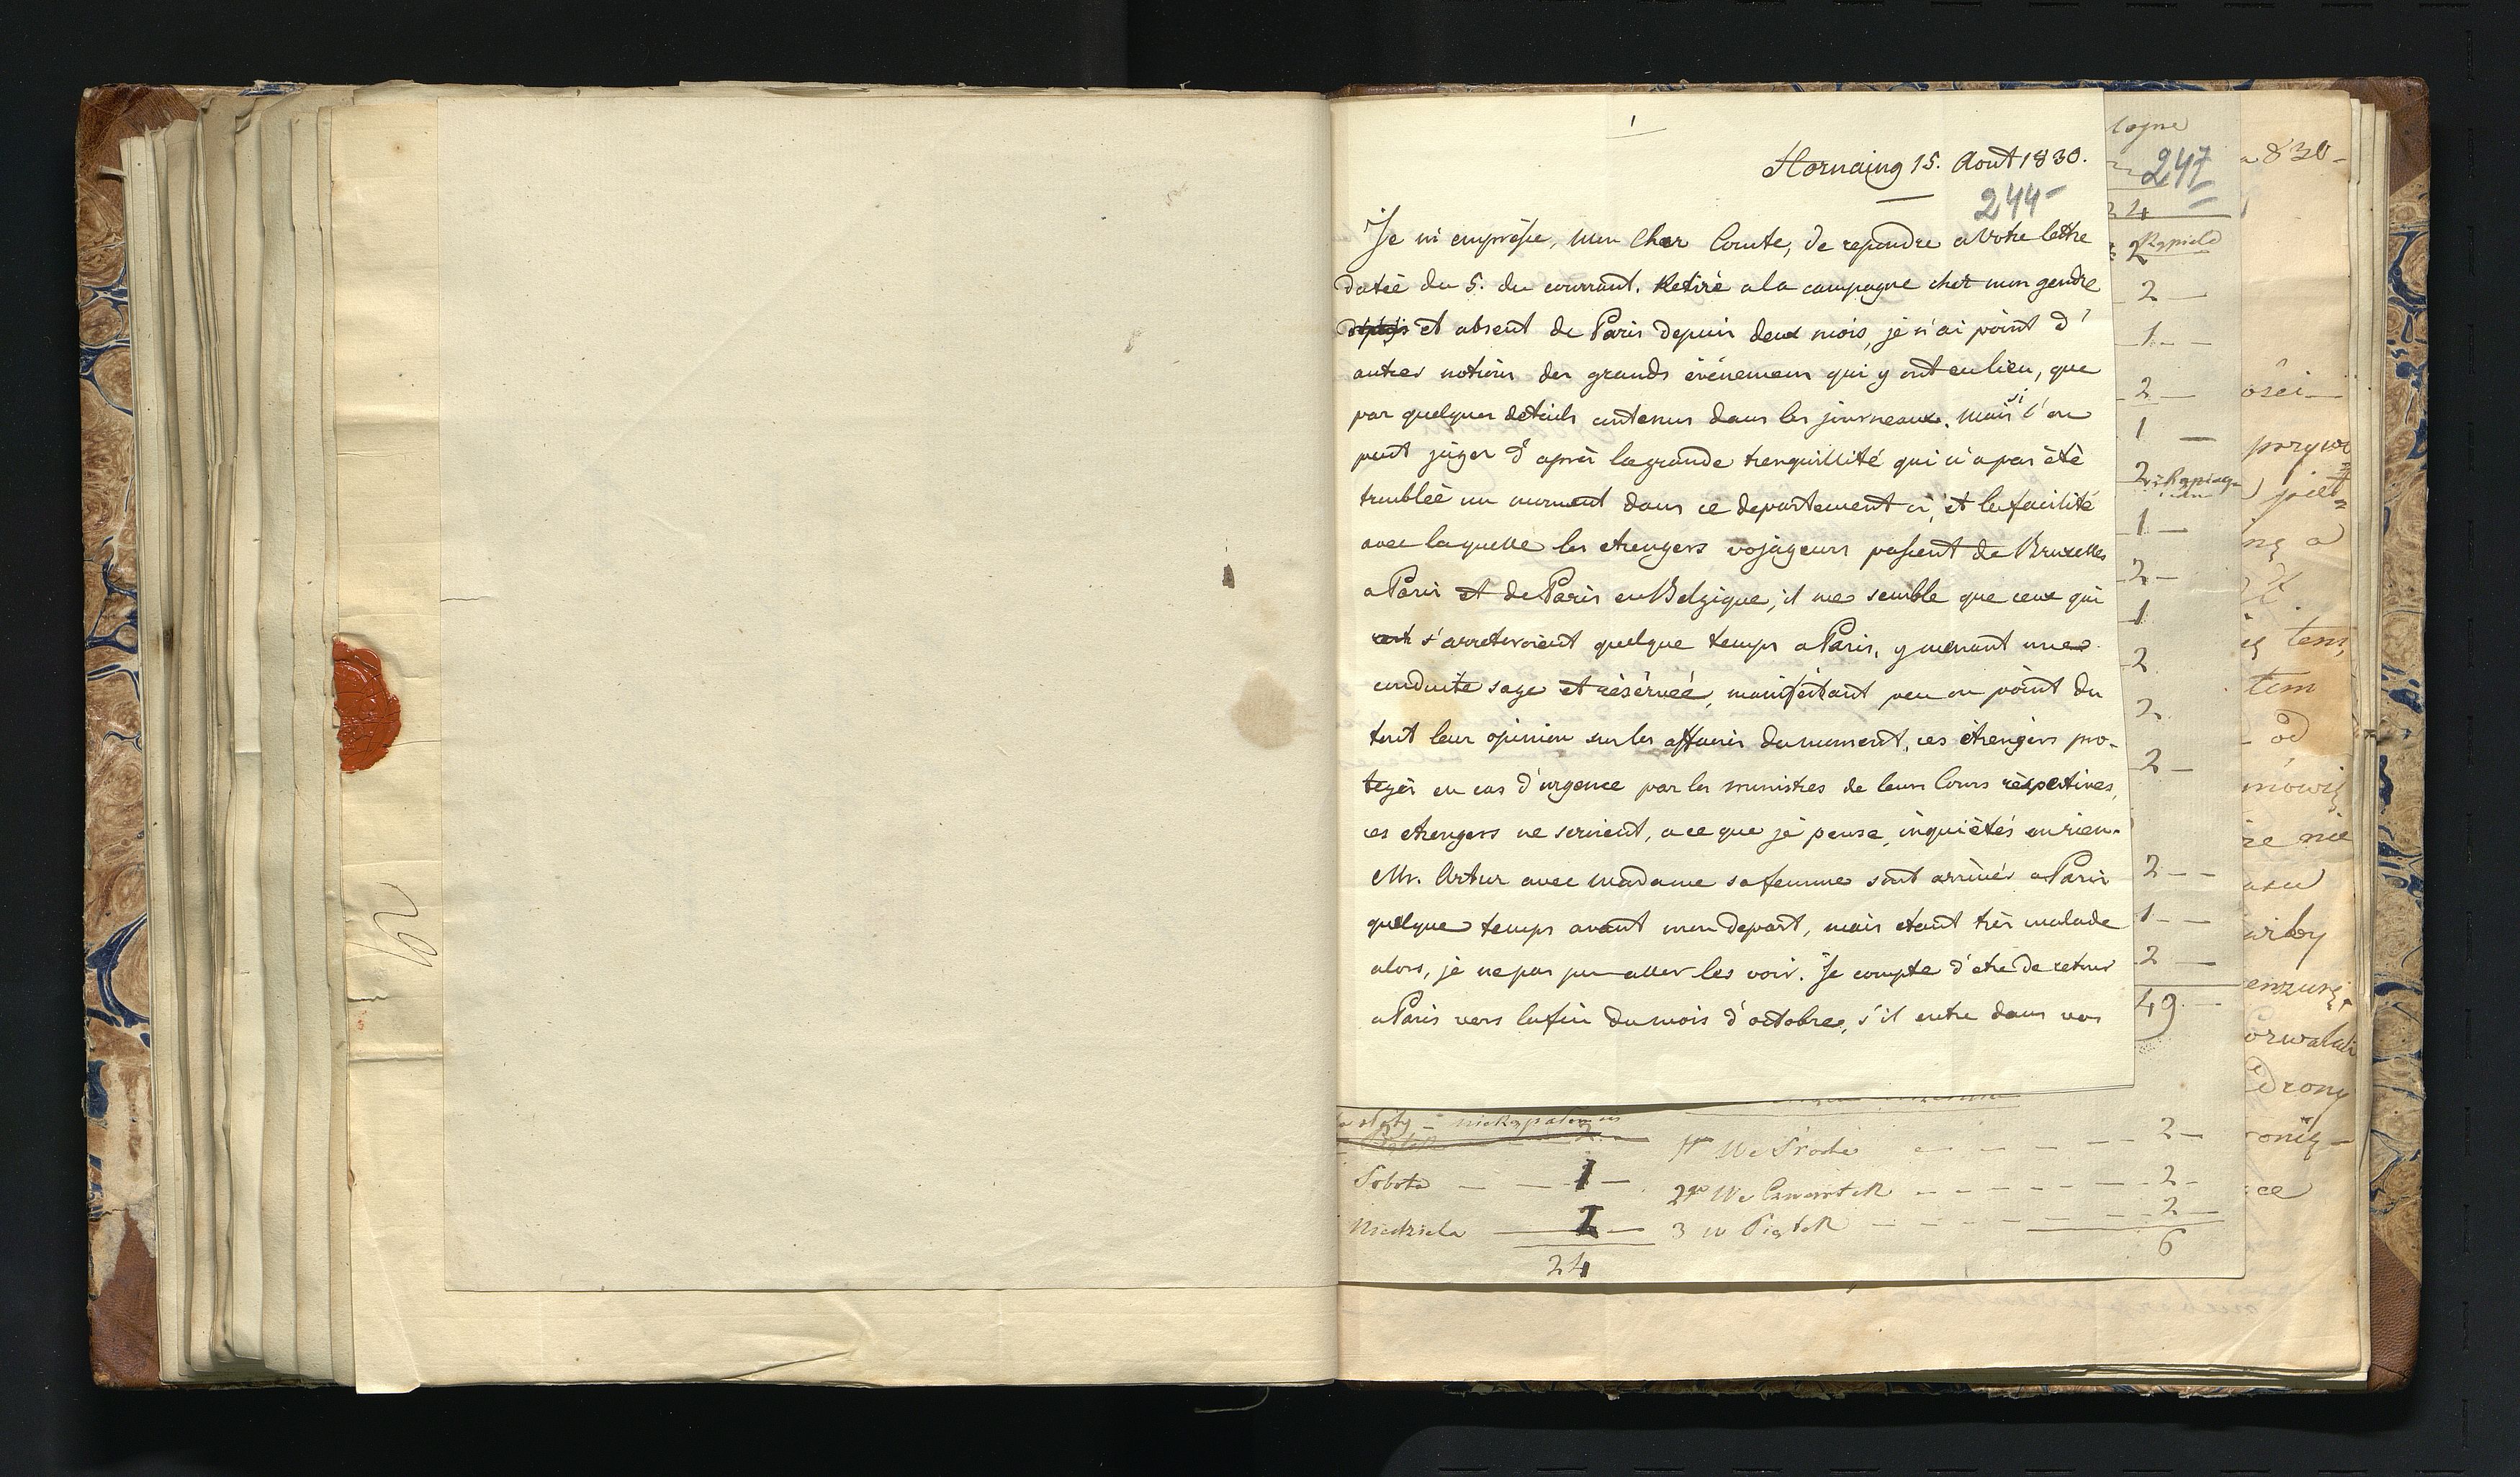 1
Hornaing 15. Aout 1830.
244
Je m'empresse, mon Cher Comte, de repondre a Votre lettre
datée du 5. du courrant. Retiré a la campagne chez mon gendre
et absent de Paris depuis deux mois, je n'ai point d'
autres notions des grands événemens qui y ont eu lieu, que
par quelques details contenus dans les journeaux. Mais si l'on
peut juger d'après la grande trenquillité qui n'a pas été
troubleé un moment dans ce departement ci, et la facilité
avec laquelle les etrengers vojageurs passent de Bruxelles
a Paris et de Paris en Belgique, il me semble que ceux qui
s'arreteroient quelque temps a Paris, y menant une
conduite sage et résérveé, manifestant peu ou point du
tout leur opinion sur les affaires du moment, ces étrengers pro-
tegés en cas d'urgence par les ministres de leurs Cours réspectives,
ces etrengers ne seroient, a ce que je pense, inquiétés en rien.
Mr. Artur avec Madame sa femme sont arrivés a Paris
quelque temps avant mon depart, mais etant très malade
alors, je ne pas pu aller les voir. Je compte d'etre de retour
a Paris vers la fin du mois d'octobre, s'il entre dans vos
logne
247
24
2
2
1
2
1
2
1
2
1
2
2
2
2
1
2
49
Sobota 1
Niedziela 2
24
1 We Srode 2
2 We Czwartek 2
3 w Piątek 2
6
830
tem
od
nie